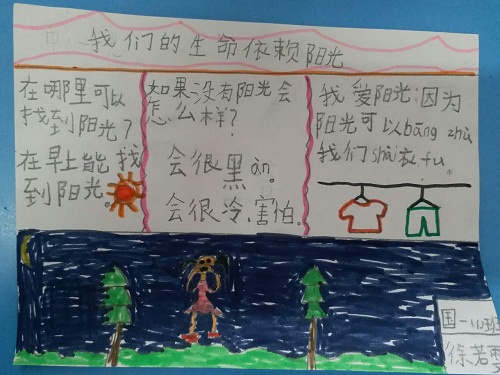 我们的生命依赖阳光
在哪里可以
找到阳光？
在早上能找
到阳光。
如果没有阳光会
怎么样？
会很黑àn。
会很冷，害怕。
我爱阳光：因为
阳光可以bāng zhù
我们shài衣fu。
国一（1）班
徐若雪